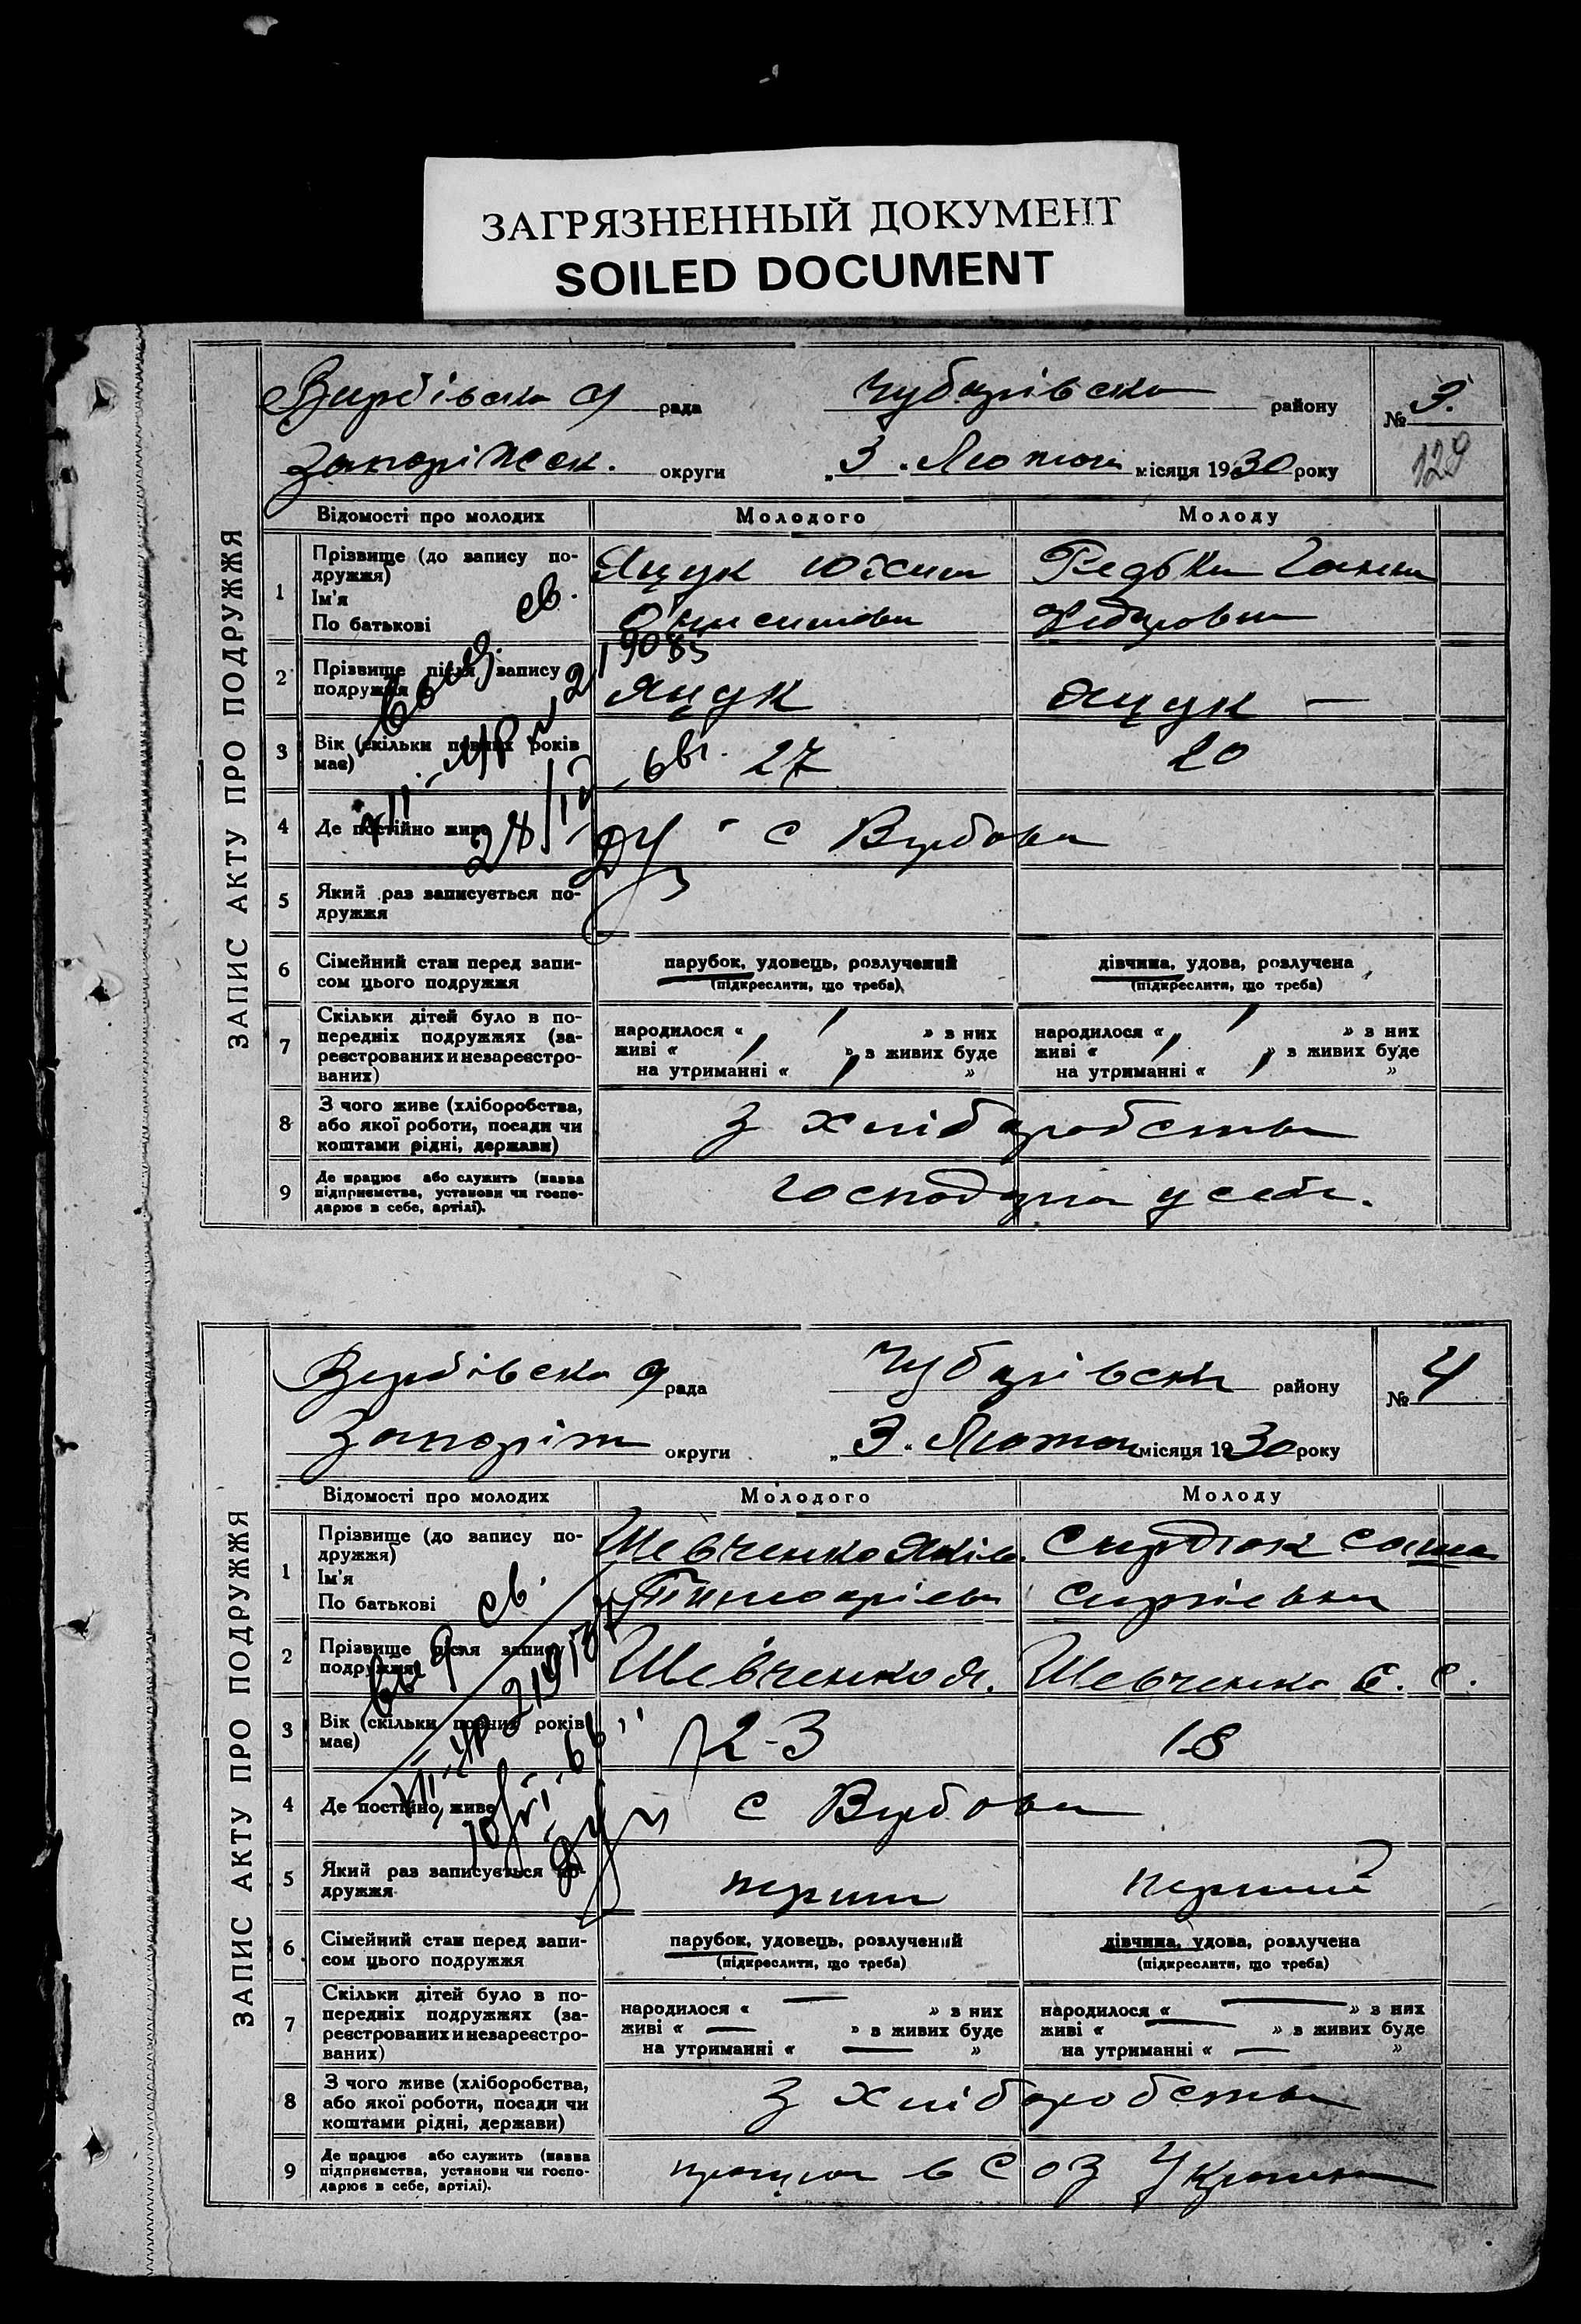 ЗАГРЯЗНЕННЫЙ ДОКУМЕНТ
SOILED DOCUMENT
ЗАПИС АКТУ ПРО ПОДРУЖЖЯ
Вербівська с/ рада Чубарівська району № 3.
Запоріжськ. округи „3" Лютого місяця 1930 року
129
Відомості про молодих Молодого Молоду
1 Прізвище (до запису по-
дружжя)
Ім'я
По батькові
Яцук Юхим Редька Ганна
Онисимови Федоровна
2 Прізвище після запису
подружжя
Яцук Яцук —
3 Вік (скільки повних років
має)
27 20
4 Де постійно живе
с Вербова
5 Який раз записується по-
дружжя
6 Сімейний стан перед запи-
сом цього подружжя
парубок, удовець, розлучений дівчина, удова, розлучена
(підкреслити, що треба) (підкреслити, що треба)
7 Скільки дітей було в по-
передніх подружжях (за-
реєстрованих и незареєстро-
ваних)
народилося « » з них народилося « » з них
живі « » з живих буде живі « » з живих буде
на утриманні « » на утриманні « »
8 З чого живе (хліборобства,
або якої роботи, посади чи
коштами рідні, держави)
З хліборобства
9 Де працює або служить (назва
підприємства, установи чи госпо-
дарює в себе, артілі).
господарює у себе.
ЗАПИС АКТУ ПРО ПОДРУЖЖЯ
Вербівська с/ рада Чубарівська району № 4
Запоріж округи „3" Лютого місяця 1930 року
Відомості про молодих Молодого Молоду
1 Прізвище (до запису по-
дружжя)
Ім'я
По батькові
Шевченко Яків Сердюк Саша
Тимофієви Сергіевна
2 Прізвище після запису
подружжя
Шевченко Я. Шевченко С. С.
3 Вік (скільки повних років
має)
23 18
4 Де постійно живе
с Вербова
5 Який раз записується по-
дружжя
перший перший
6 Сімейний стан перед запи-
сом цього подружжя
парубок, удовець, розлучений дівчина, удова, розлучена
(підкреслити, що треба) (підкреслити, що треба)
7 Скільки дітей було в по-
передніх подружжях (за-
реєстрованих и незареєстро-
ваних)
народилося « — » з них народилося « — » з них
живі « — » з живих буде живі « — » з живих буде
на утриманні « — » на утриманні « — »
8 З чого живе (хліборобства,
або якої роботи, посади чи
коштами рідні, держави)
З хліборобства
9 Де працює або служить (назва
підприємства, установи чи госпо-
дарює в себе, артілі).
в СОЗ